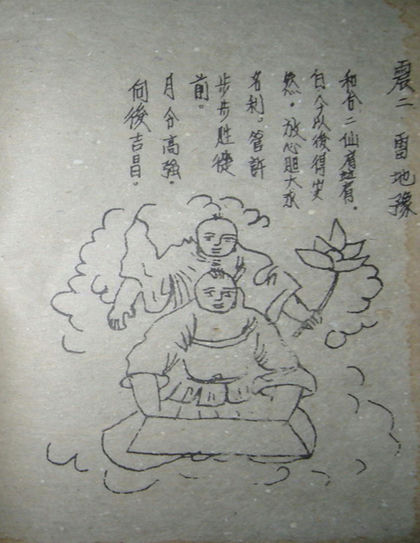 震二 雷地豫
和合二仙有有。
自今以後得安
然。放心胆大求
名利。管許
步步胜從
前。
月令高強。
向後吉昌。